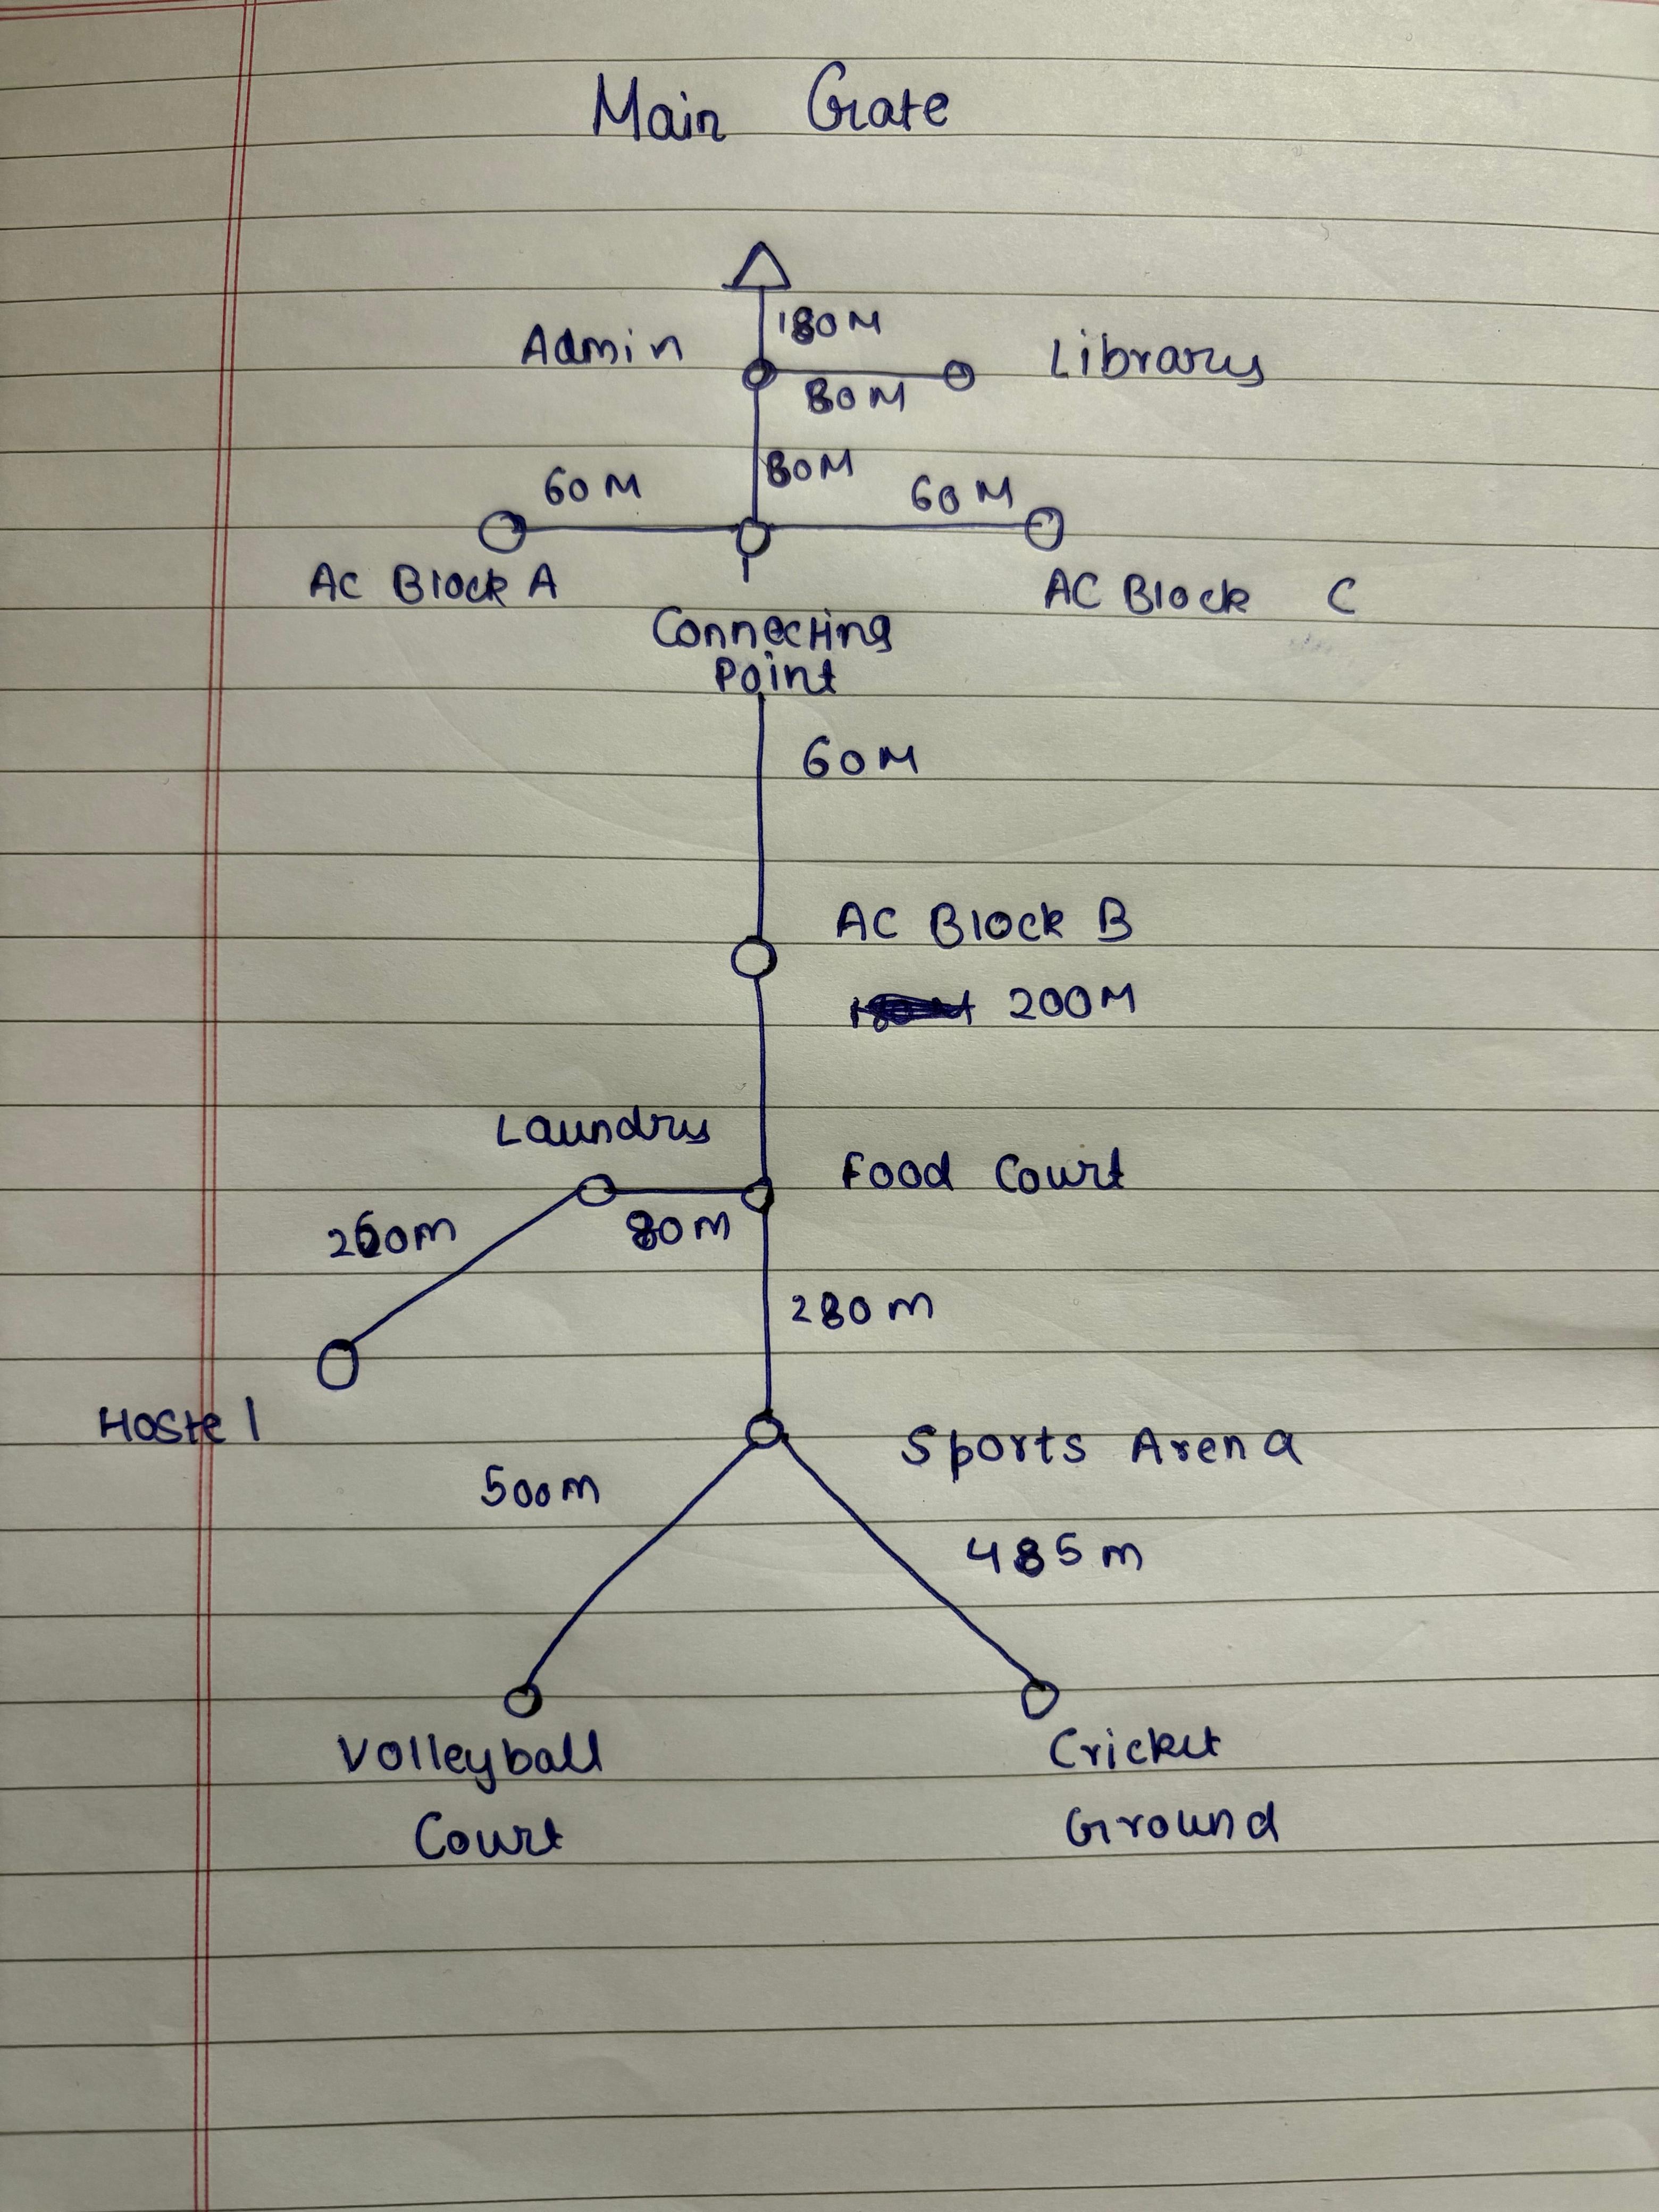 Main Gate
180M
Admin
Library
80M
80M
60M
60M
AC Block A
AC Block C
Connecting
Point
60M
AC Block B
200M
Laundry
Food Court
260m
80m
280m
Hostel
Sports Arena
500m
485m
Volleyball
Court
Cricket
Ground